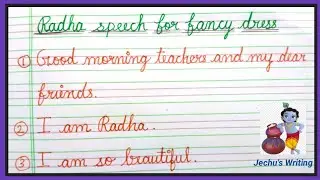 Radha speech for fancy dress
① Good morning teachers and my dear
friends.
② I am Radha.
③ I am so beautiful.
Jechu's Writing